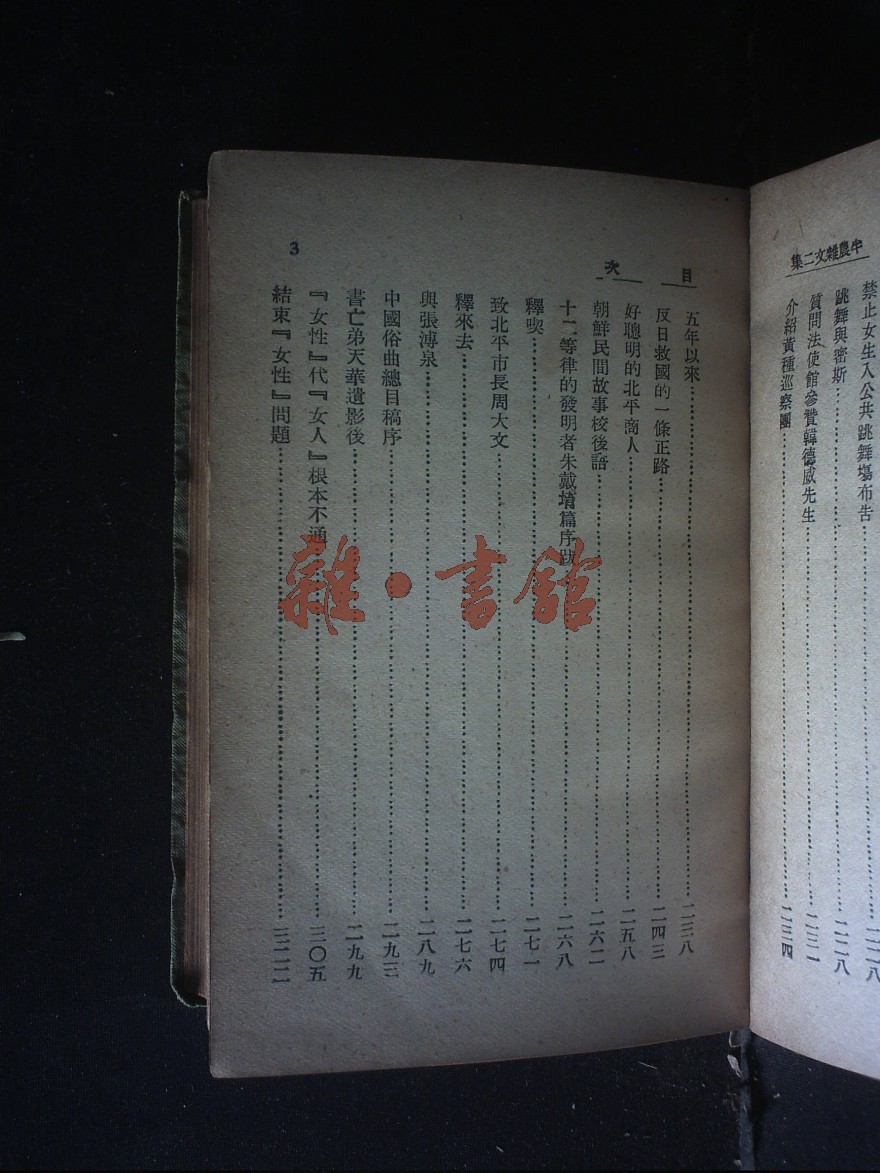 半農雜文二集
禁止女生入公共跳舞場布告
跳舞與密斯……二二八
質問法使館參贊韓德威先生……二三一
介紹黃種巡察團……二三四
目次
五年以來……二三八
反日救國的一條正路……二四三
好聰明的北平商人……二五八
朝鮮民間故事校後語……二六二
十二等律的發明者朱戴堉篇序跋……二六八
釋喫……二七一
致北平市長周大文……二七四
釋來去……二七六
與張溥泉……二八九
中國俗曲總目稿序……二九三
書亡弟天華遺影後……二九九
『女性』代『女人』根本不通……三〇五
結束『女性』問題……三二二
3
雜·書館